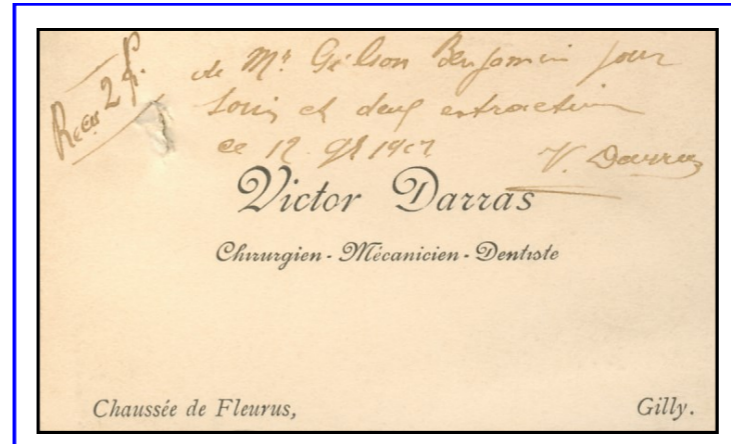 Reçu 2 f.
de Mr Gilson Benjamin pour
soins et deux extraction
ce 12 1907
V. Darras
Victor Darras
Chirurgien - Mécanicien - Dentiste
Chaussée de Fleurus,
Gilly.